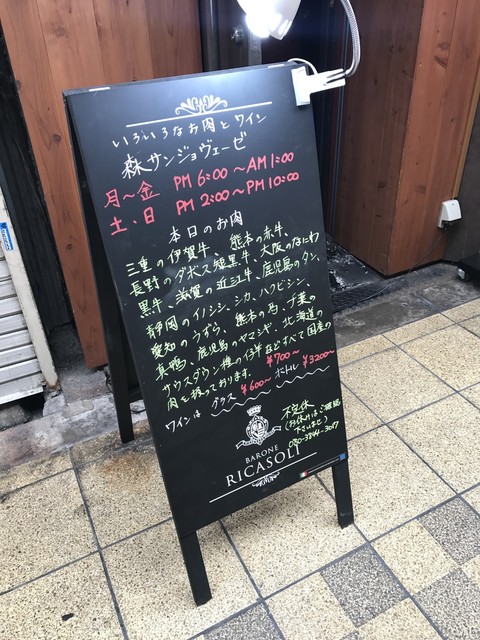 いろいろなお肉とワイン
森サンジョヴェーゼ
月〜金 PM 6:00 〜 AM 1:00
土、日 PM 2:00 〜 PM 10:00
本日のお肉
三重の伊賀牛、熊本の赤牛、
長野のダボス短黒牛、大阪のなにわ
黒牛、滋賀の近江牛、鹿児島のタン、
静岡のイノシシ、シカ、ハクビシン、
愛知のうずら、熊本の馬、千葉の
真鴨、鹿児島のヤマシギ、北海道の
サウスダウン種の仔羊などすべて国産の
肉を扱っております。 ¥700〜
ワインは グラス ¥600〜 ボトル ¥3200〜
不定休
(お休みはご確認
下さいませ)
BARONE
RICASOLI